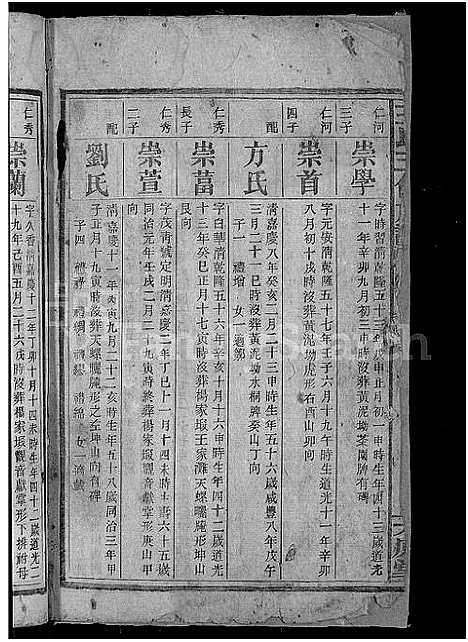 仁河
三子
崇學
字時習清乾隆五十三年戊申正月初一申時生年四十三歲道光
十一年辛卯九月初三申時沒葬黃泥坳茶園肺有碑
仁河
四子
崇首
字元安清乾隆五十七年壬子六月十九午時生道光十一年辛卯
八月初十戌時沒葬黃泥坳虎形右酉山卯向
配
方氏
清嘉慶八年癸亥二月二十三申時生年五十六歲咸豐八年戊午
三月二十一巳時沒葬黃泥坳水桐脾癸山丁向
子一 禮增 女一適鄒
仁秀
長子
崇菖
字白華清乾隆五十六年辛亥十月十一午時生年四十二歲道光
十三年癸巳正月十七寅時沒葬楊家塅王家灘天螺曬靨形坤山
艮向
仁秀
二子
崇萱
字茂清號定明清嘉慶二年丁巳十一月十四未時生年六十五歲
同治元年壬戌二月二十九寅時終葬楊家塅觀音獻掌形庚山甲
向
配
劉氏
清嘉慶十一年丙寅九月二十二亥時生年五十八歲同治三年甲
子正月十九寅時沒葬天螺曬靨形之左坤山艮向有碑
子四 禮 禮綢 禮 禮綿 女一適戴
仁秀
崇蘭
字久香清嘉慶十二年丁卯十月十四未時生年四十二歲道光二
十九年己酉五月二十六戌時沒葬楊家塅觀音獻掌形下排祔母